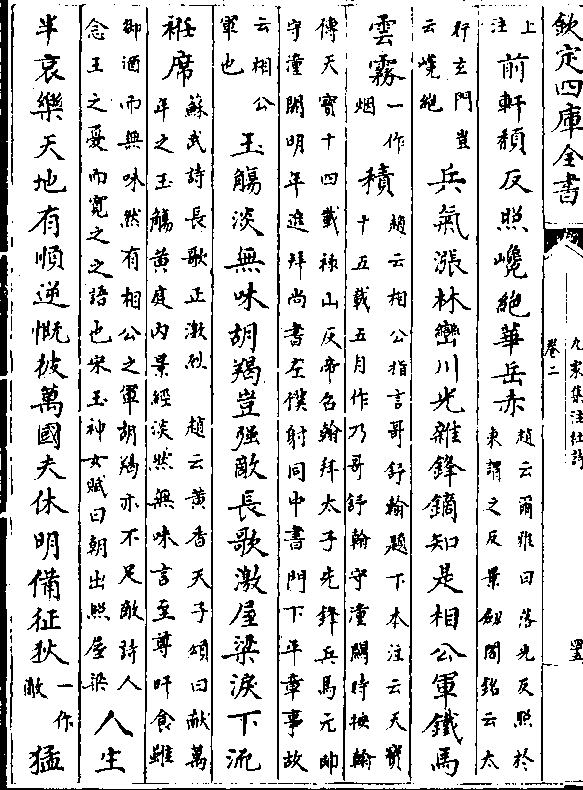 欽定四庫全書
九家集注杜詩
卷二
上
注
前軒頹反照巉絶華岳赤
趙云爾雅曰落光反照於
東謂之反景劒閣銘云太
行玄門豈
云嶢絶
兵氣漲林巒川光雜鋒鏑知是相公軍鐵馬
雲霧
一作
烟
積
趙云相公指言哥舒翰題下本注云天寶
十五載五月作乃哥舒翰守潼關時按翰
傳天寶十四載禄山反帝召翰拜太子先鋒兵馬元帥
守潼關明年進拜尚書左僕射同中書門下平章事故
云相公
軍也
玉觴淡無味胡羯豈强敵長歌激屋梁淚下流
衽席
蘇武詩長歌正激烈 趙云黄香天子頌曰献萬
年之玉觴黄庭内景經淡然無味言至尊旰食雖
御酒而無味然有相公之軍胡羯亦不足敵詩人
念王之憂而寛之之語也宋玉神女賦曰朝出照屋梁
人生
半哀樂天地有順逆慨彼萬國夫休明備征狄
一作
敵
猛